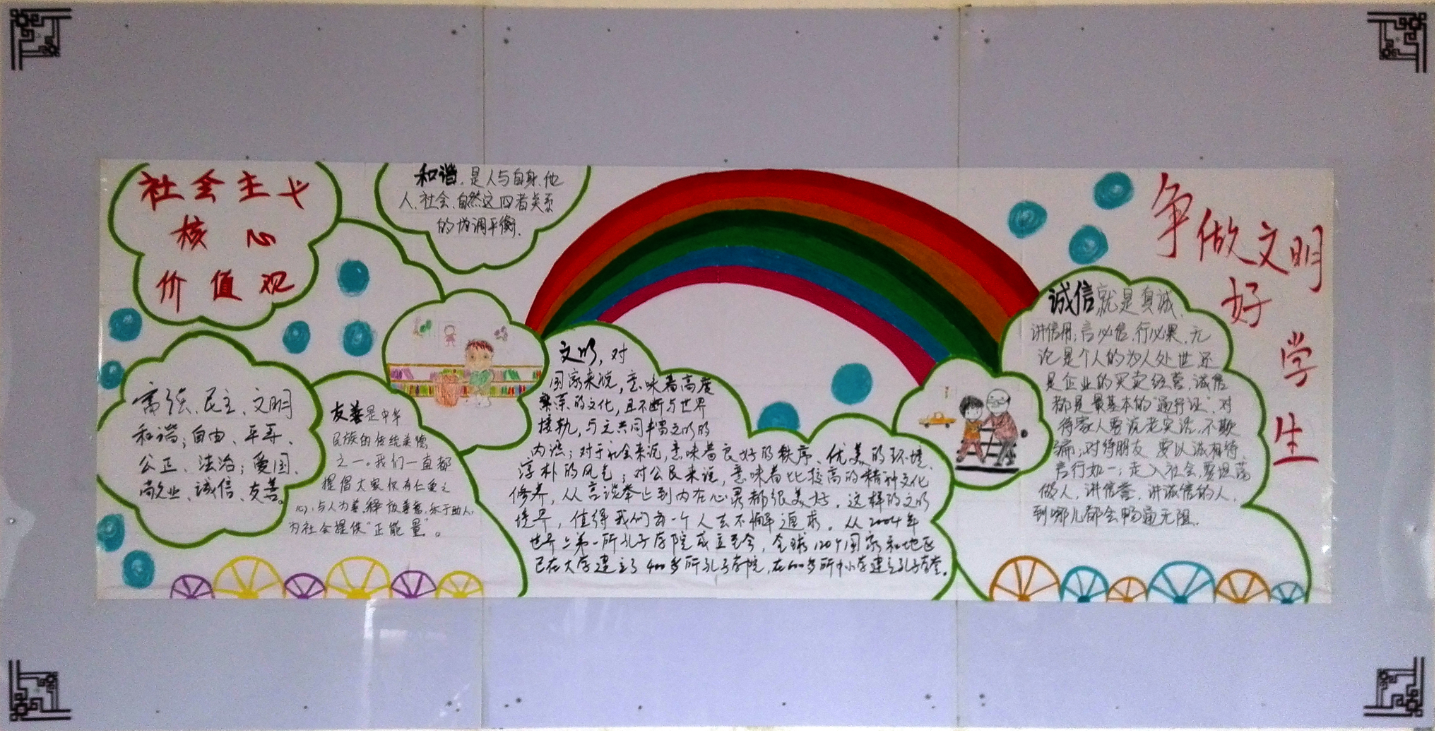 社会主义
核心
价值观
和谐,是人与自身、他
人、社会、自然这四者关系
的协调平衡.
富强、民主、文明
和谐;自由、平等、
公正、法治;爱国、
敬业、诚信、友善。
友善是中华
民族的传统美德
之一。我们一直都
提倡大家仅有仁爱之
心,与人为善,乐于助人,
为社会提供“正能量”。
文明,对
国家来说,意味着高度
繁荣的文化,且不断与世界
接轨,与之共同丰富文明的
内涵;对于社会来说,意味着良好的秩序、优美的环境、
淳朴的风气;对公民来说,意味着比较高的精神文化
修养,从言谈举止到内在心灵都很美好。这样的文明
境界,值得我们每一个人去不懈追求。从2004年
世界上第一所孔子学院成立至今,全球120个国家和地区
已在大学建立了400多所孔子学院,在600多所中小学建立孔子学堂。
争做文明
好
学
生
诚信就是真诚、
讲信用;言必信,行必果,无
论是个人的为人处世还
是企业的买卖经营,诚信
都是最基本的“通行证”.对
待家人要说老实话,不欺
骗;对待朋友要以诚相待、
言行如一;走入社会要坦荡
做人,讲信誉.讲诚信的人,
到哪儿都会畅通无阻.